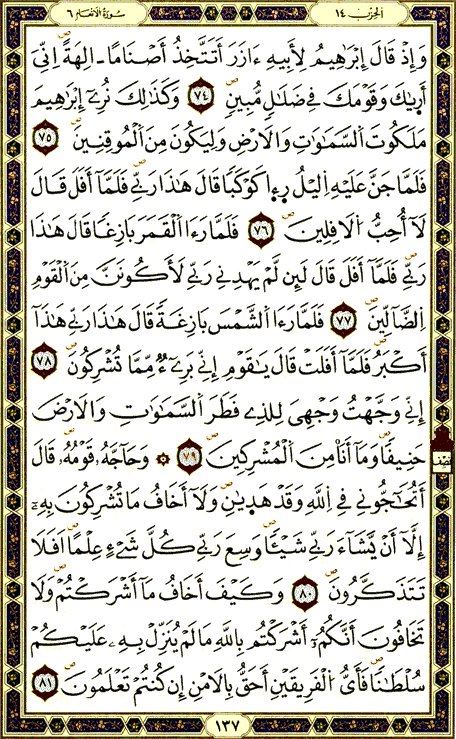 الحزب ١٤
سورة الأنعام ٦
وَإِذْ قَالَ إِبْرَٰهِيمُ لِأَبِيهِ ءَازَرَ أَتَتَّخِذُ أَصْنَامًا ـ الِهَةً اِنِّيَ
أَرَىٰكَ وَقَوْمَكَ فِي ضَلَٰلٖ مُّبِينٖ ٧٤ وَكَذَٰلِكَ نُرِےٓ إِبْرَٰهِيمَ
مَلَكُوتَ اَلسَّمَٰوَٰتِ وَالَارْضِ وَلِيَكُونَ مِنَ اَلْمُوقِنِينَ ٧٥
فَلَمَّا جَنَّ عَلَيْهِ اِليْلُ رِءٜا كَوْكَباٗ قَالَ هَٰذَا رَبِّے فَلَمَّآ أَفَلَ قَالَ
لَآ أُحِبُّ اُلَافِلِينَ ٧٦ فَلَمَّا رَءَا اَلْقَمَرَ بَازِغاٗ قَالَ هَٰذَا
رَبِّے فَلَمَّآ أَفَلَ قَالَ لَئِن لَّمْ يَهْدِنِے رَبِّے لَأَكُونَنَّ مِنَ اَلْقَوْمِ
اِلضَّآلِّينَ ٧٧ فَلَمَّا رَءَا اَلشَّمْسَ بَازِغَةٗ قَالَ هَٰذَا رَبِّے هَٰذَآ
أَكْبَرُ فَلَمَّآ أَفَلَتْ قَالَ يَٰقَوْمِ إِنِّے بَرِےٓءٞ مِّمَّا تُشْرِكُونَ ٧٨
إِنِّے وَجَّهْتُ وَجْهِيَ لِلذِے فَطَرَ اَلسَّمَٰوَٰتِ وَالَارْضَ
حَنِيفاٗ وَمَآ أَنَا مِنَ اَلْمُشْرِكِينَ ٧٩ ۞ وَحَآجَّهُۥ قَوْمُهُۥ قَالَ
أَتُحَٰٓجُّونِے فِے اِللَّهِ وَقَدْ هَدَىٰنِۦ وَلَآ أَخَافُ مَا تُشْرِكُونَ بِهِۦٓ
إِلَّآ أَنْ يَّشَآءَ رَبِّے شَيْـٔاٗ وَسِعَ رَبِّے كُلَّ شَےْءٍ عِلْماً اَفَلَا
تَتَذَكَّرُونَ ٨٠ وَكَيْفَ أَخَافُ مَآ أَشْرَكْتُمْ وَلَا
تَخَافُونَ أَنَّكُمُۥٓ أَشْرَكْتُم بِاللَّهِ مَا لَمْ يُنَزِّلْ بِهِۦ عَلَيْكُمْ
سُلْطَٰناٗ فَأَيُّ اُلْفَرِيقَيْنِ أَحَقُّ بِالَامْنِ إِن كُنتُمْ تَعْلَمُونَ ٨١
نصف
١٣٧